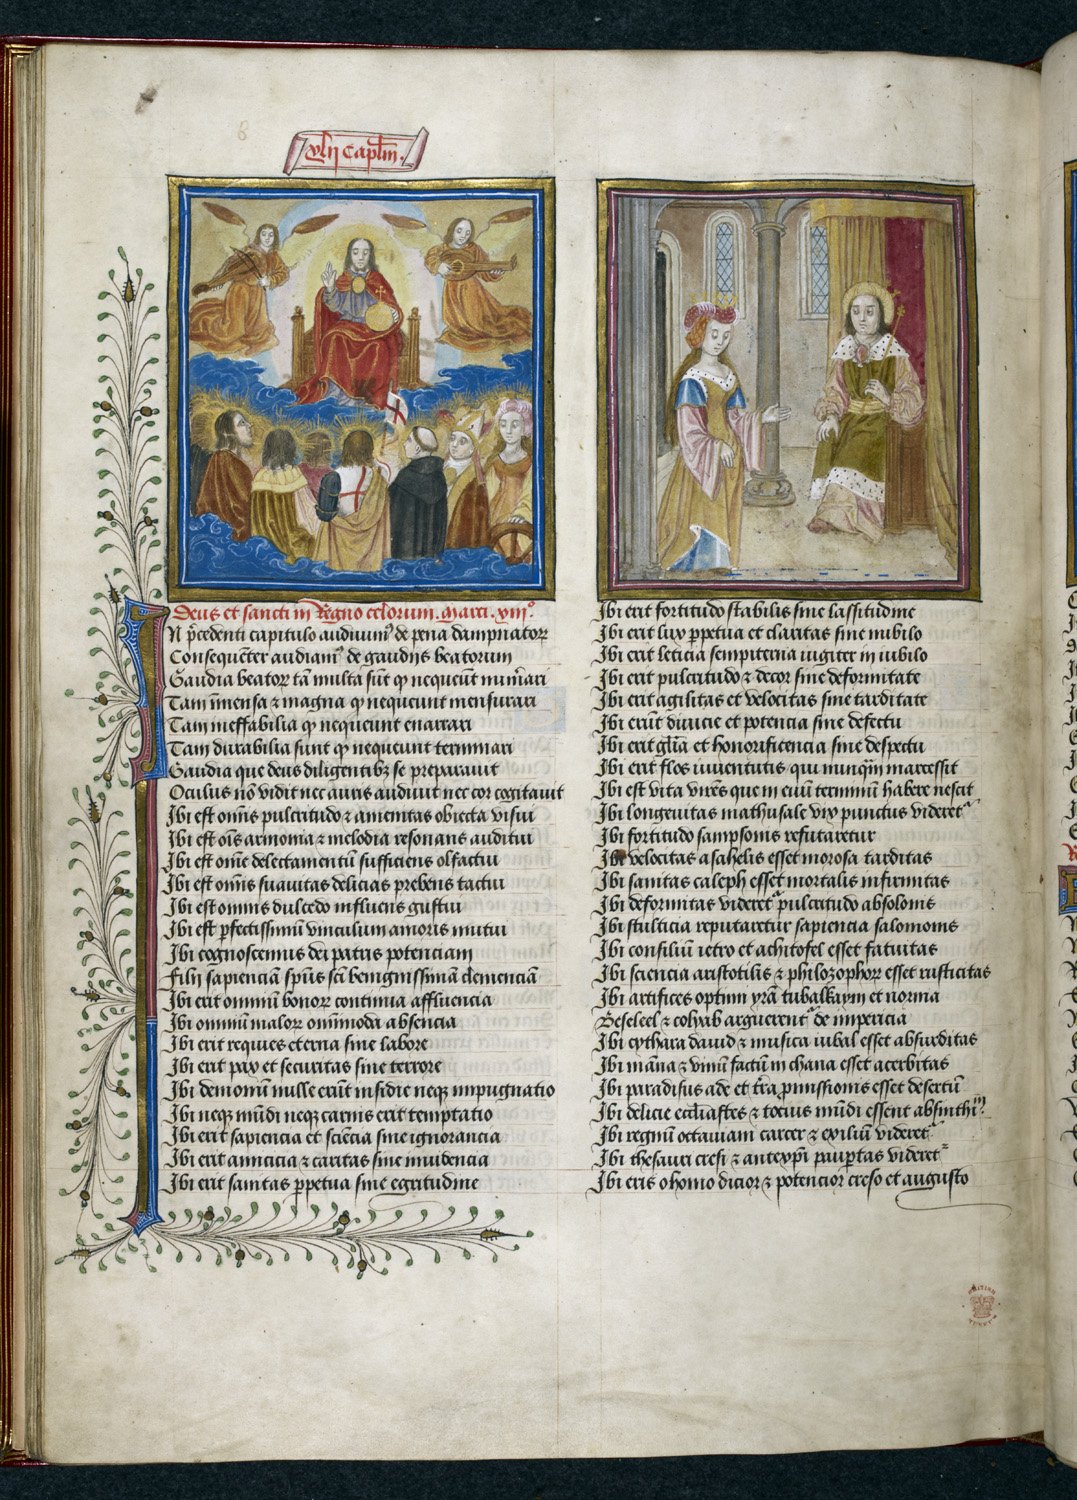 xlij Capl̅m.
Deus et sancti in Regno celorum. Marci. xiij°
IN p̅cedenti capitulo audiuim⁹ de pena dampnatoꝝ
Consequēter audiam⁹ de gaudijs beatorum
Gaudia beatoꝝ tā multa sūt ꝙ nequeūt num̅ari
Tam īmensa & magna ꝙ nequeunt mensurari
Tam ineffabilia ꝙ nequeunt enarrari
Tam durabilia sunt ꝙ nequeunt terminari
Gaudia que deus diligentibꝫ se preparauit
Oculus nō vidit nec auris audiuit nec cor cogitauit
Ibi est omīs pulcritudo & amenitas obiecta visui
Ibi est oīs armonia & melodia resonans auditui
Ibi est omē delectamentū sufficiens olfactui
Ibi est omīs suauitas delicias prebens tactui
Ibi est omnis dulcedo influens gustui
Ibi est ꝑfectissimū vinculum amoris mutui
Ibi cognoscemus dei patris potenciam
Filij sapienciam spūs scī benignissimā clemenciā
Ibi erit omniū bonoꝝ continua affluencia
Ibi omniū maloꝝ omīmoda absencia
Ibi erit requies eterna sine labore
Ibi erit pax et securitas sine terrore
Ibi demonum nulle erūt insidie neqꝫ impugnatio
Ibi neqꝫ mūdi neqꝫ carnis erit temptatio
Ibi erit sapiencia et sciēcia sine ignorancia
Ibi erit amicicia & caritas sine inuidencia
Ibi erit sanitas ꝑpetua sine egritudine
Ibi erit fortitudo stabilis sine lassitudine
Ibi erit lux ꝑpetua et claritas sine nubilo
Ibi erit leticia sempiterna iugiter in iubilo
Ibi erit pulcritudo & decor sine deformitate
Ibi erit agilitas et velocitas sine tarditate
Ibi erūt diuicie et potencia sine defectu
Ibi erit glīa et honorificencia sine despectu
Ibi erit flos iuuentutis qui nunqm̄ marcessit
Ibi est vita viuēs que in euū terminū habere nescit
Ibi longeuitas mathusale vix punctus videret᷑
Ibi fortitudo sampsonis refutaretur
Ibi velocitas asahelis esset morosa tarditas
Ibi sanitas caleph esset mortalis infirmitas
Ibi deformitas videret᷑ pulcritudo absolonis
Ibi stulticia reputaretur sapiencia salomonis
Ibi consiliū ietro et achitofel esset fatuitas
Ibi sciencia aristotilis & philozophoꝝ esset rusticitas
Ibi artifices optimi yrā tubalkaym et norma
Beseleel & eolyab arguerent᷑ de impericia
Ibi cythara dauid & musica iubal esset absurditas
Ibi māna & vinū factū in chana esset acerbitas
Ibi paradisus ade et t̄ra ꝓmissionis esset desertū
Ibi delicie eccl̄iastes & tocius mūdi essent absinthiū
Ibi regnū octauiani carcer & exiliū videret᷑
Ibi thesauri cresi & antexp̄i paup̄tas videret᷑
Ibi eris o homo dicior & potencior creso et augusto
BRITISH MUSEUM